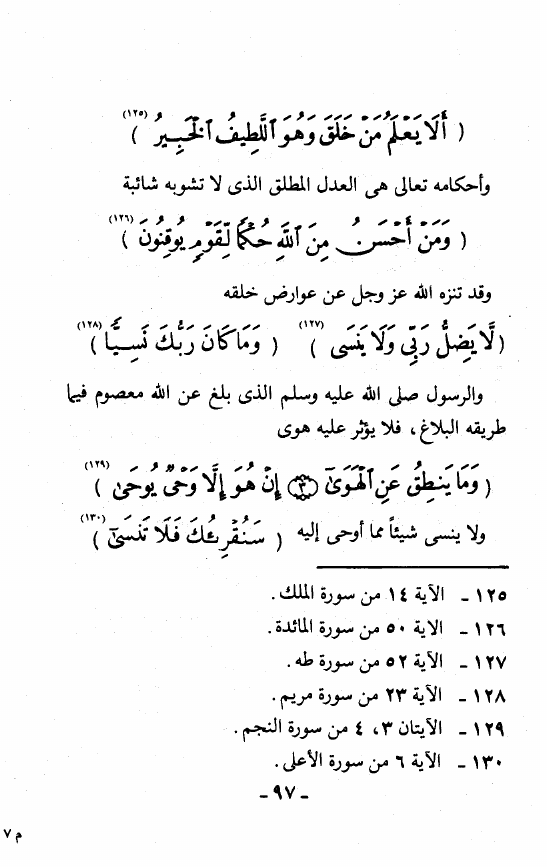 ( أَلَا يَعْلَمُ مَنْ خَلَقَ وَهُوَ ٱللَّطِيفُ ٱلْخَبِيرُ )(١٢٥)
وأحكامه تعالى هى العدل المطلق الذى لا تشوبه شائبة
( وَمَنْ أَحْسَنُ مِنَ ٱللَّهِ حُكْمًا لِّقَوْمٍ يُوقِنُونَ )(١٢٦)
وقد تنزه الله عز وجل عن عوارض خلقه
( لَّا يَضِلُّ رَبِّى وَلَا يَنسَى )(١٢٧) ( وَمَا كَانَ رَبُّكَ نَسِيًّا )(١٢٨)
والرسول صلى الله عليه وسلم الذى بلغ عن الله معصوم فيما
طريقه البلاغ، فلا يؤثر عليه هوى
( وَمَا يَنطِقُ عَنِ ٱلْهَوَىٰٓ ۝٣ إِنْ هُوَ إِلَّا وَحْىٌ يُوحَىٰ )(١٢٩)
ولا ينسى شيئاً مما أوحى إليه ( سَنُقْرِئُكَ فَلَا تَنسَىٰٓ )(١٣٠)
١٢٥ - الآية ١٤ من سورة الملك.
١٢٦ - الاية ٥٠ من سورة المائدة.
١٢٧ - الآية ٥٢ من سورة طه.
١٢٨ - الآية ٢٣ من سورة مريم.
١٢٩ - الآيتان ٣، ٤ من سورة النجم.
١٣٠ - الآية ٦ من سورة الأعلى.
- ٩٧ -
م ٧